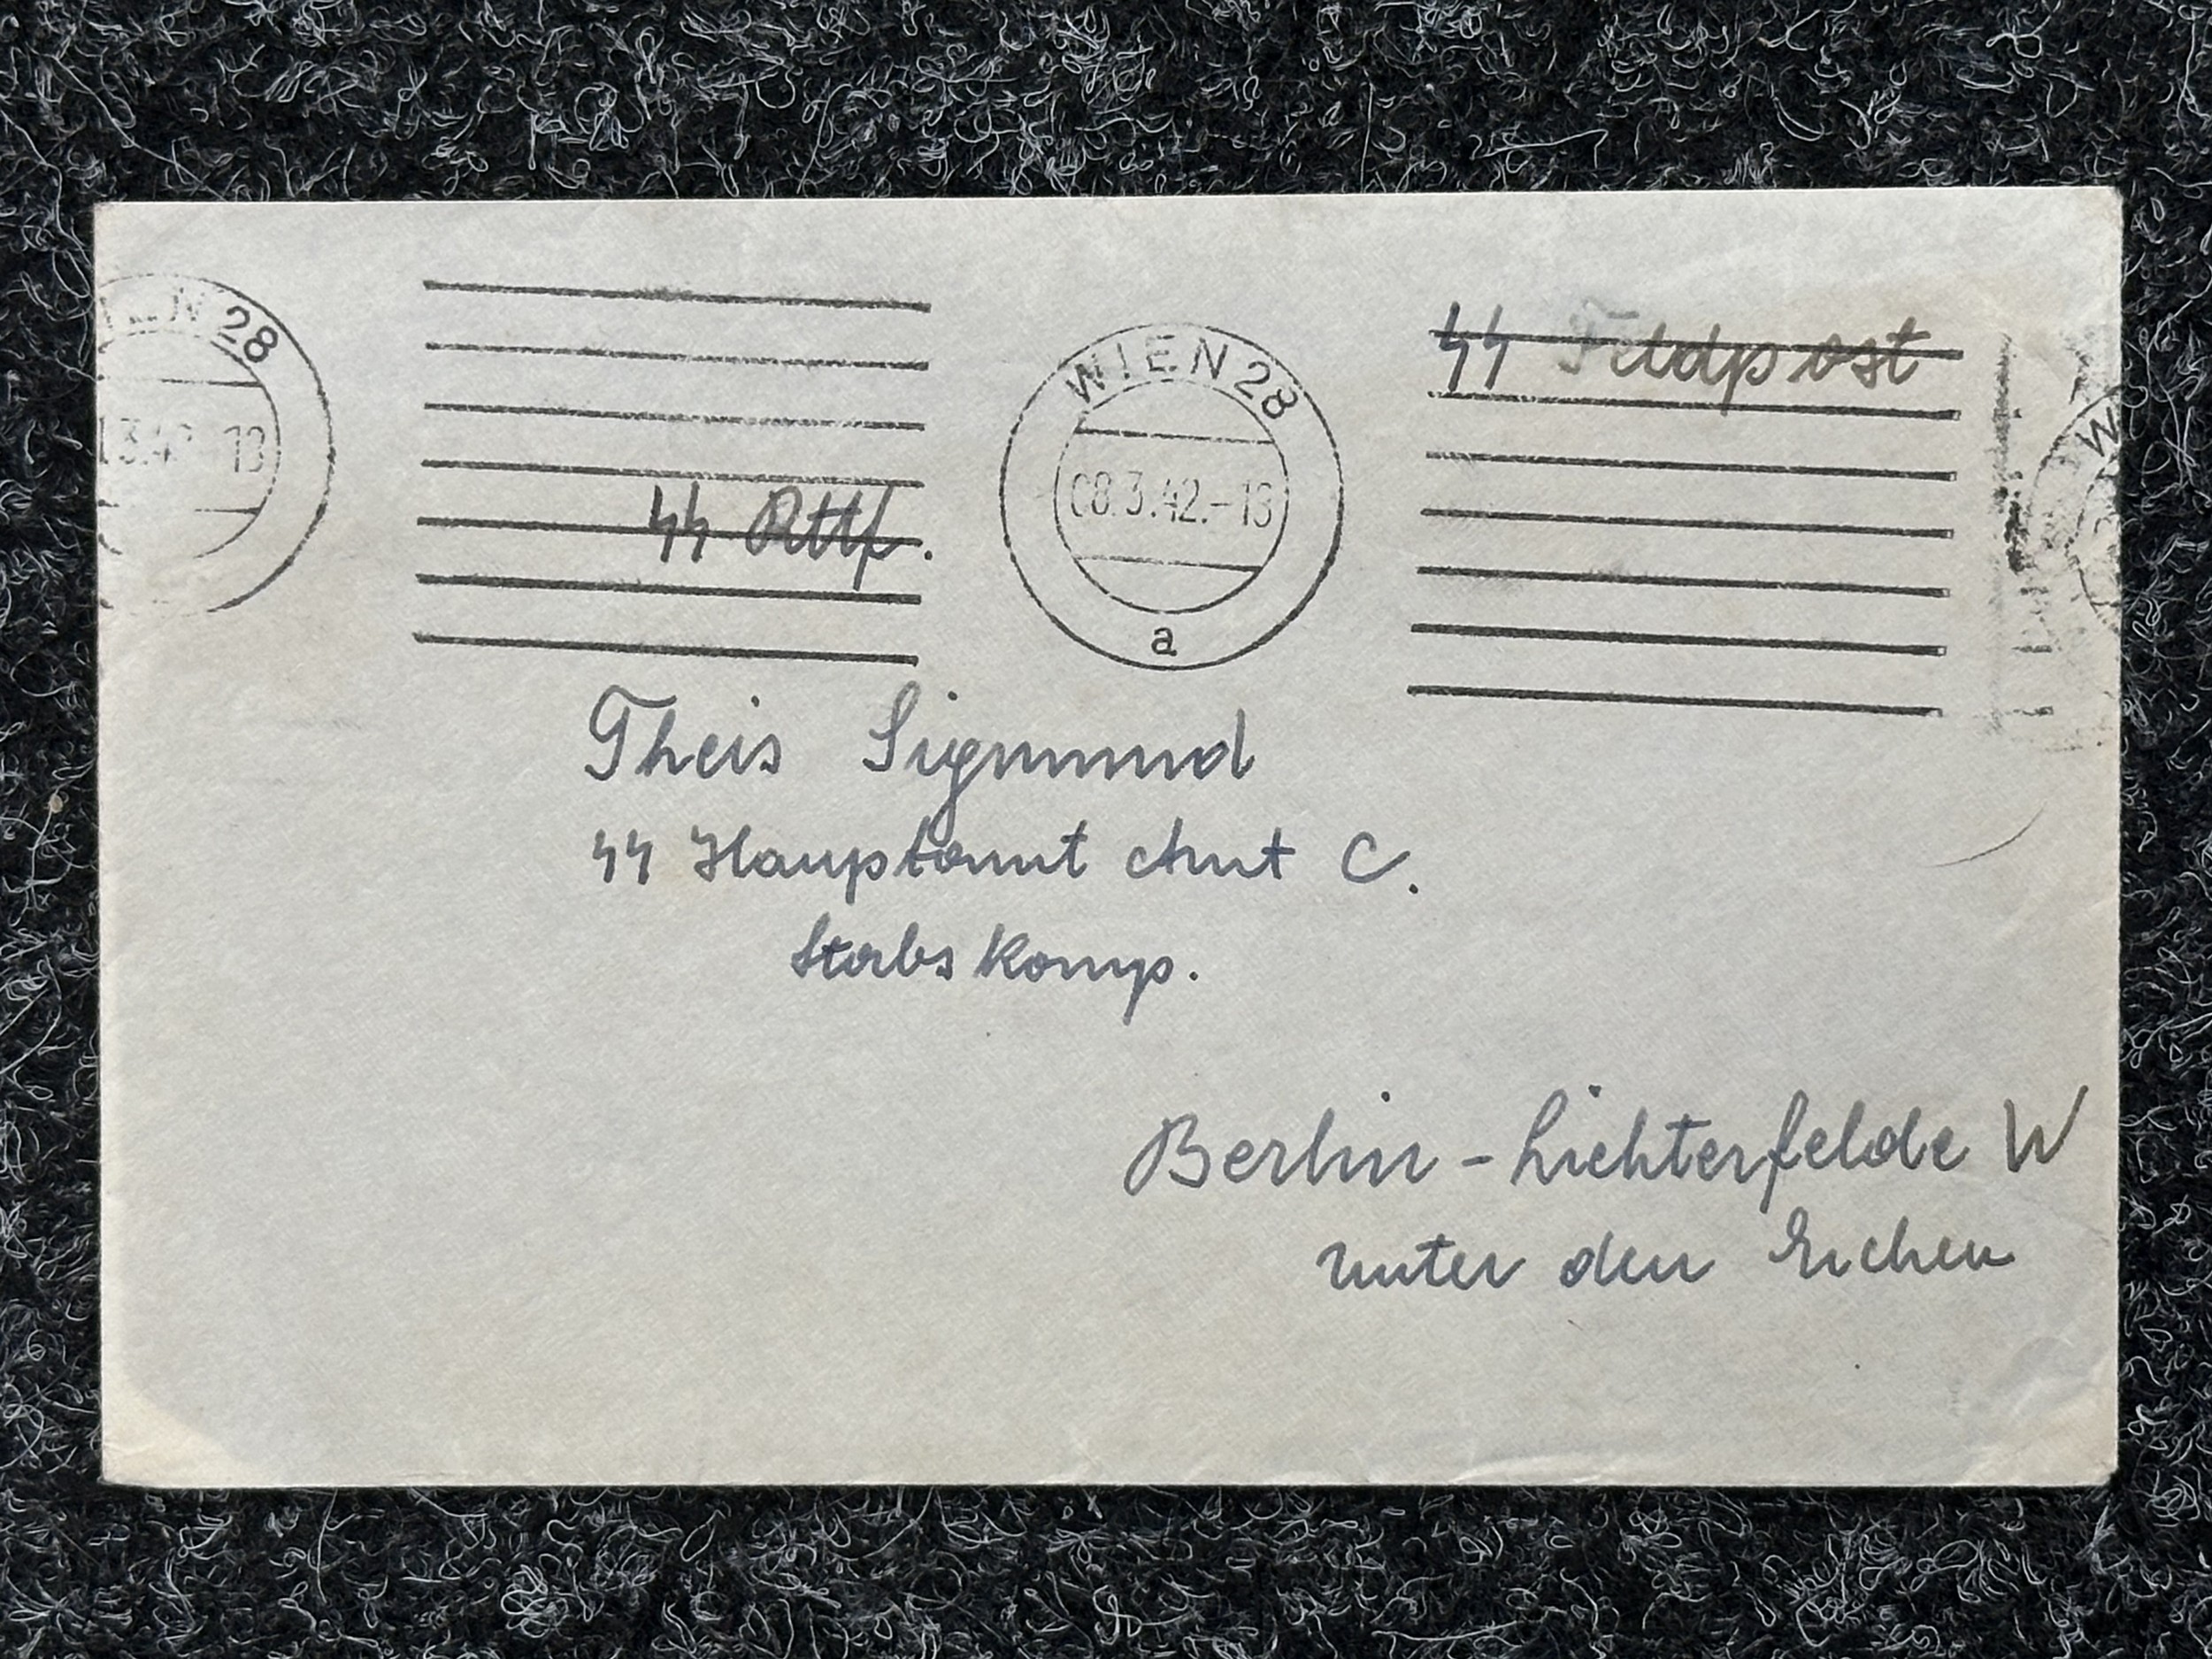 WIEN 28
WIEN 28
08.3.42.-13
a
SS Feldpost
SS Rttf.
Theis Sigmund
SS Hauptamt Amt C.
Stabskomp.
Berlin - Lichterfelde W
unter den Eichen